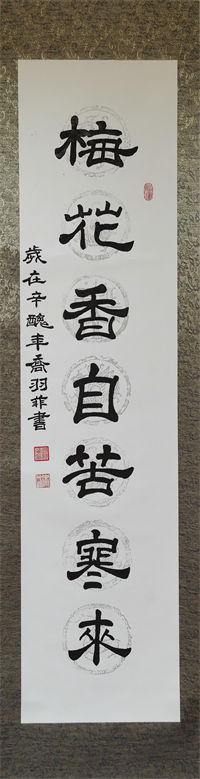 梅花香自苦寒來
歲在辛醜年喬羽菲書